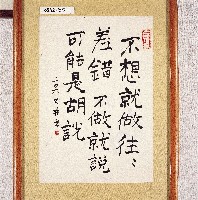 不想就做往〻
差錯 不做就說
可能是胡說